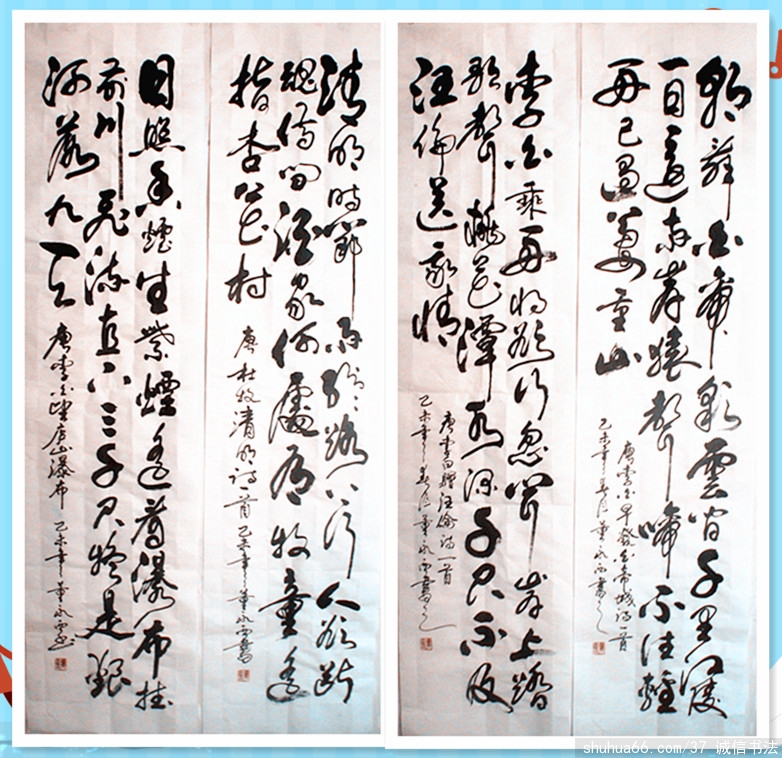 朝辞白帝彩雲间千里江陵
一日还两岸猿声啼不住轻
舟已過萬重山
唐李白早發白帝城诗一首
乙未年之春月董永書之
李白乘舟将欲行忽闻岸上踏
歌声桃花潭水深千尺不及
汪倫送我情
唐李白贈汪倫诗一首
乙未年之春月董永書之
清明時節雨纷纷路上行人欲断
魂借问酒家何處有牧童遥
指杏花村
唐杜牧清明诗一首乙未年之董永書
日照香炉生紫煙遥看瀑布挂
前川飛流直下三千尺疑是銀
河落九天
唐李白望庐山瀑布 乙未年之董永书
shuhua66.com/37 诚信书法